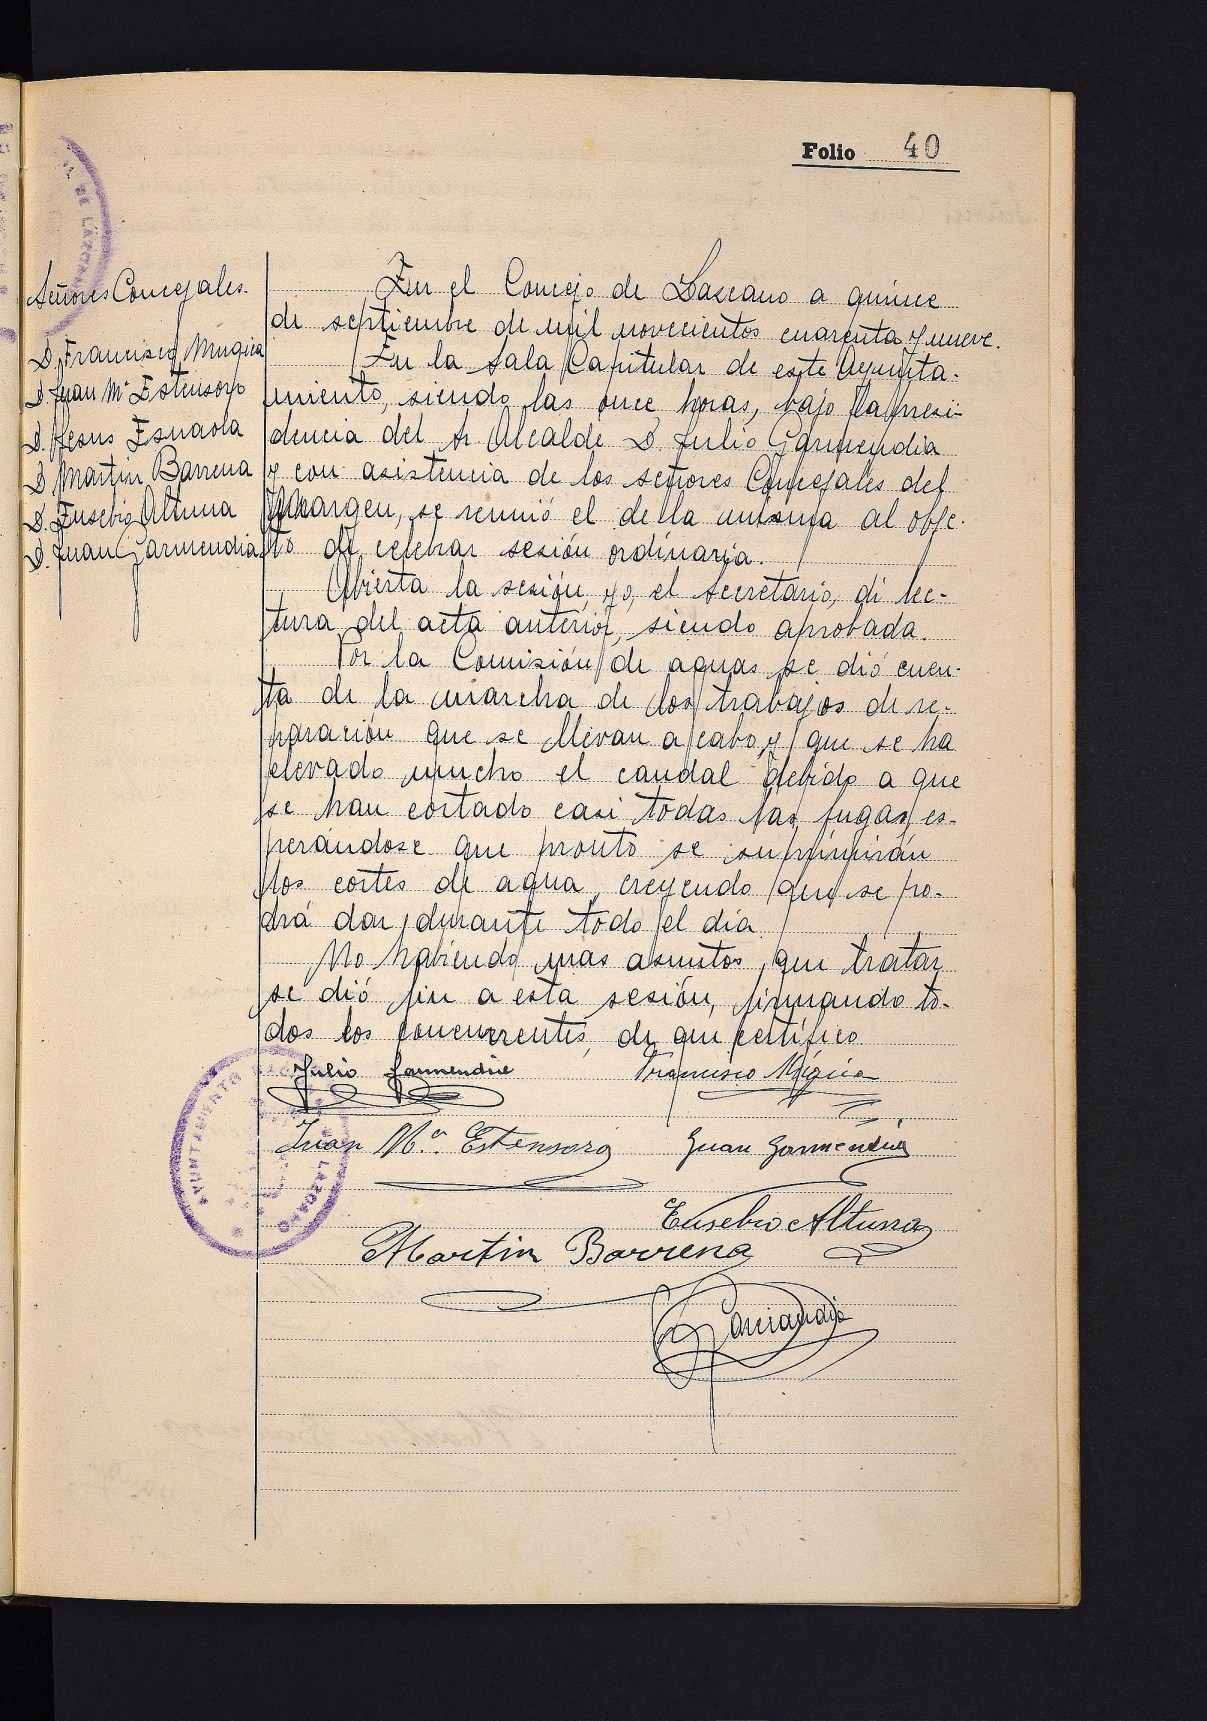 Folio 40
Señores Concejales.
D. Francisco Mugica
D. Juan Mª Estensoro
D. Jesus Esnaola
D. Martin Barrena
D. Eusebio Altuna
D. Juan Garmendia
En el Concejo de Lazcano a quince
de septiembre de mil novecientos cuarenta y nueve.
En la Sala Capitular de este Ayunta-
miento, siendo las once horas, bajo la presi-
dencia del Sr Alcalde D. Julio Garmendia
y con asistencia de los señores Concejales del
margen, se reunió el de la misma al obje-
to de celebrar sesión ordinaria.
Abierta la sesión, yo, el Secretario, di lec-
tura del acta anterior, siendo aprobada.
Por la Comisión de aguas se dió cuen-
ta de la marcha de los trabajos de re-
paración que se llevan a cabo, y que se ha
elevado mucho el caudal debido a que
se han cortado casi todas las fugas, es-
perándose que pronto se suprimirán
los cortes de agua, creyendo que se po-
drá dar durante todo el día.
No habiendo mas asuntos que tratar
se dió fin a esta sesión, firmando to-
dos los concurrentes, de que certifico
Julio Garmendia Francisco Múgica
Juan Mª. Estensoro Juan Garmendia
Eusebio Altuna
Martin Barrena
AYUNTAMIENTO
LAZCANO
DE LAZCANO